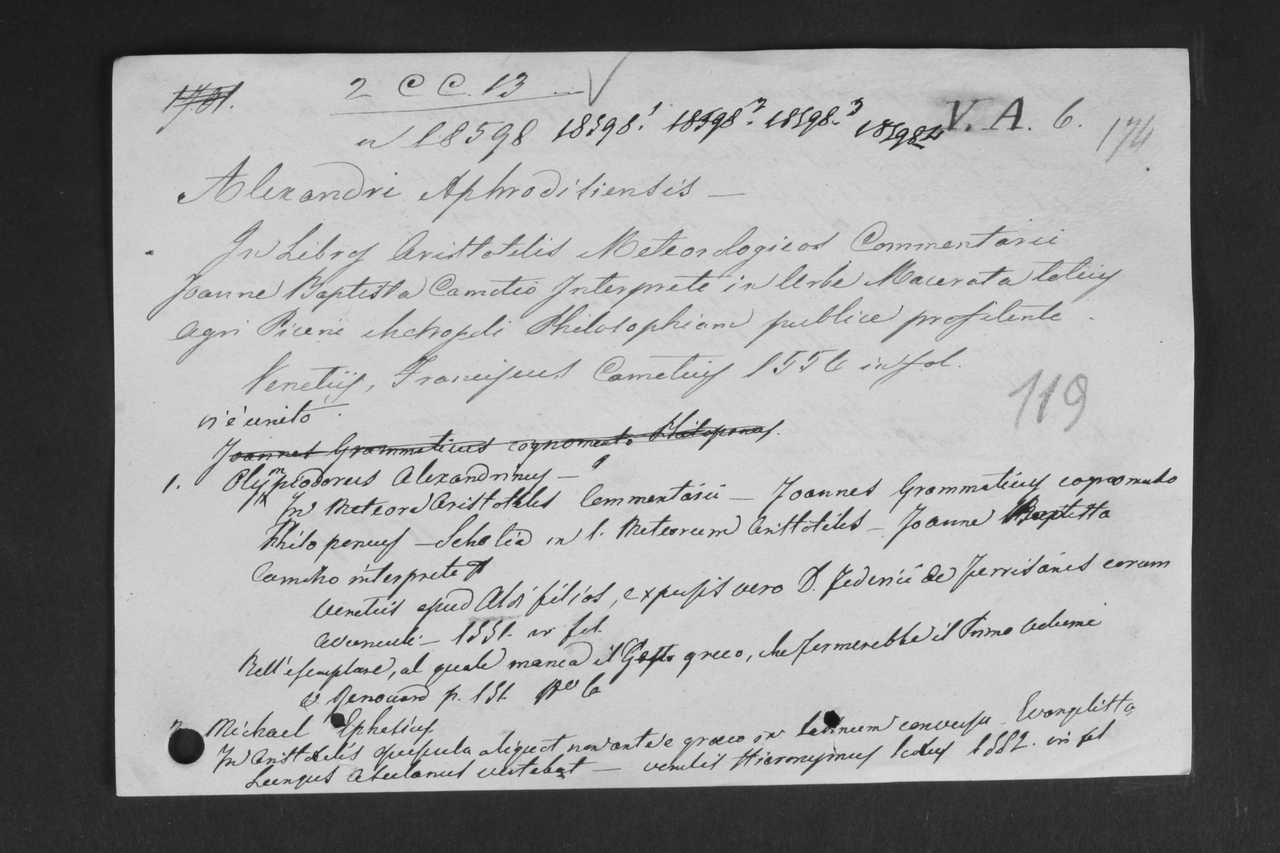 1781. 2 C C. 13
18598 18598.1 18598.2 18598.3 18598.4 V. A. 6. 174
Alexandri Aphrodisiensis —
In Libros Aristotelis Meteorologicos Commentarii
Joanne Baptista Camotio Interprete in Urbe Macerata totius
Agri Piceni Metropoli Philosophiam publice profitente.
Venetiis, Franciscus Camotius 1556 in fol.
119
v'è unito.
Joannes Grammaticus cognomento Philoponus.
1. Olympiodorus Alexandrinus —
In Meteora Aristotelis Commentarii — Joannes Grammaticus cognomento
Philoponus — Scholia in 1. Meteorum Aristotelis — Joanne Baptista
Camotio interprete
Venetiis apud Aldi filios, expensis vero D. Federici de Turrisanis eorum
avunculi — 1551. in fol.
Bell'esemplare, al quale manca il Testo greco, che formerebbe il Primo volume
V. Renouard p. 151. No 6
2. Michael Ephesius
In Aristotelis opuscula aliquot nunc ante e graeco in Latinum conversa. Evangelista
Lungus Asulanus vertebat — Venetiis Hieronymus Scotus 1552. in fol